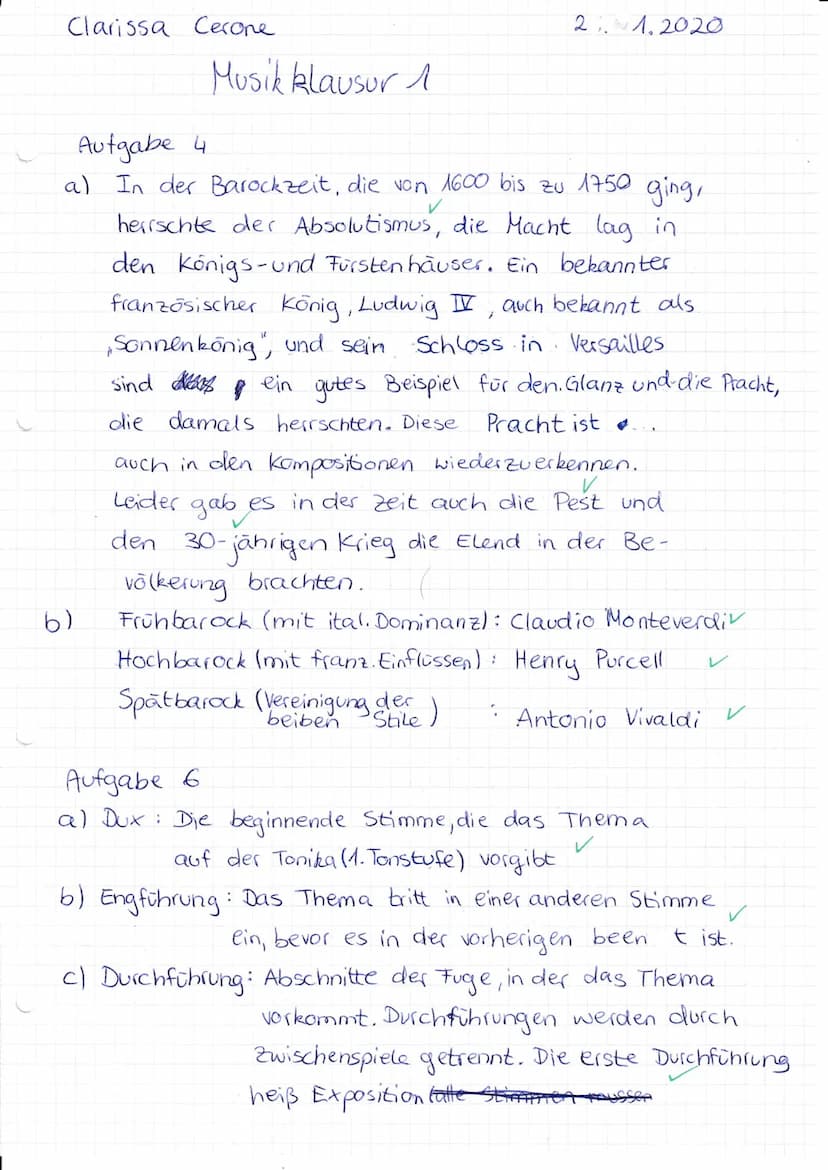 Clarissa Cerone 2 . 1.2020
Musikklausur 1
Aufgabe 4
a) In der Barockzeit, die von 1600 bis zu 1750 ging,
herrschte der Absolutismus, die Macht lag in
den Königs-und Fürstenhäuser. Ein bekannter
französischer König, Ludwig IV, auch bekannt als
„Sonnenkönig", und sein Schloss in Versailles
sind ein gutes Beispiel für den Glanz und die Pracht,
die damals herrschten. Diese Pracht ist
auch in den Kompositionen wiederzuerkennen.
Leider gab es in der Zeit auch die Pest und
den 30-jährigen Krieg die Elend in der Be-
völkerung brachten.
b) Frühbarock (mit ital. Dominanz): Claudio Monteverdi
Hochbarock (mit franz. Einflüssen): Henry Purcell
Spätbarock (Vereinigung der
beiben Stile) : Antonio Vivaldi
Aufgabe 6
a) Dux: Die beginnende Stimme, die das Thema
auf der Tonika (1. Tonstufe) vorgibt
b) Engführung: Das Thema tritt in einer anderen Stimme
ein, bevor es in der vorherigen been t ist.
c) Durchführung: Abschnitte der Fuge, in der das Thema
vorkommt. Durchführungen werden durch
Zwischenspiele getrennt. Die erste Durchführung
heiß Exposition (alle Stimmen müssen